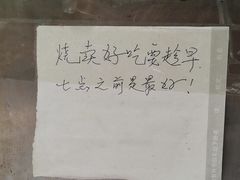 烧卖好吃要趁早
七点之前是最好!